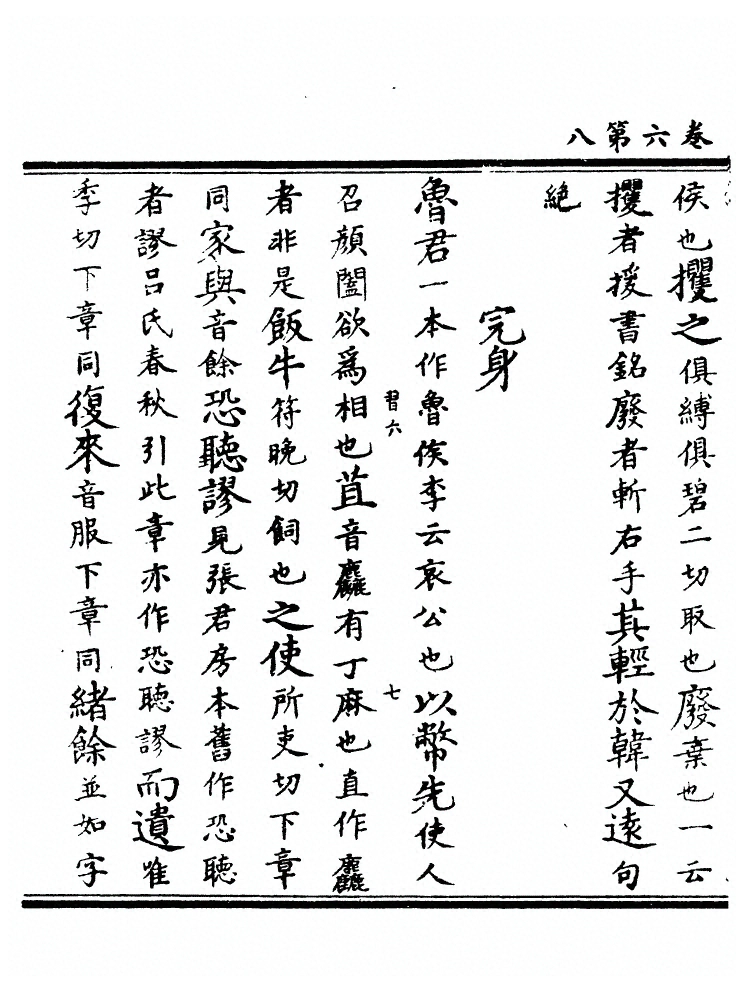 卷六第八
侯也攫之俱縛俱碧二切取也廢棄也一云
攫者援書銘廢者斬右手其輕於韓又遠句
絕
完身
魯君一本作魯侯李云哀公也以幣先使人
習六
七
召顏闔欲爲相也苴音麤有丁麻也直作麤
者非是飯牛符晚切飼也之使所吏切下章
同家與音餘恐聽謬見張君房本舊作恐聽
者謬呂氏春秋引此章亦作恐聽謬而遺唯
季切下章同復來音服下章同緒餘並如字